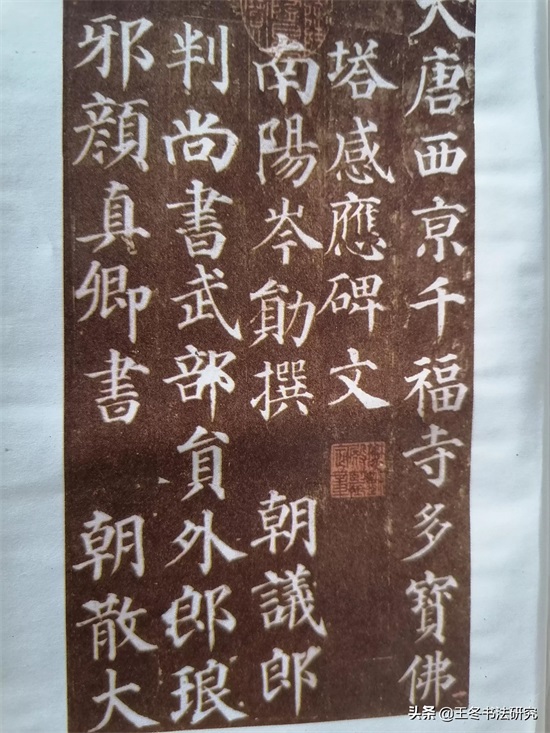 大唐西京千福寺多寶佛
塔感應碑文
南陽岑勛撰 朝議郎
判尚書武部貟外郎琅
邪顏真卿書 朝散大
头条 @王冬书法研究